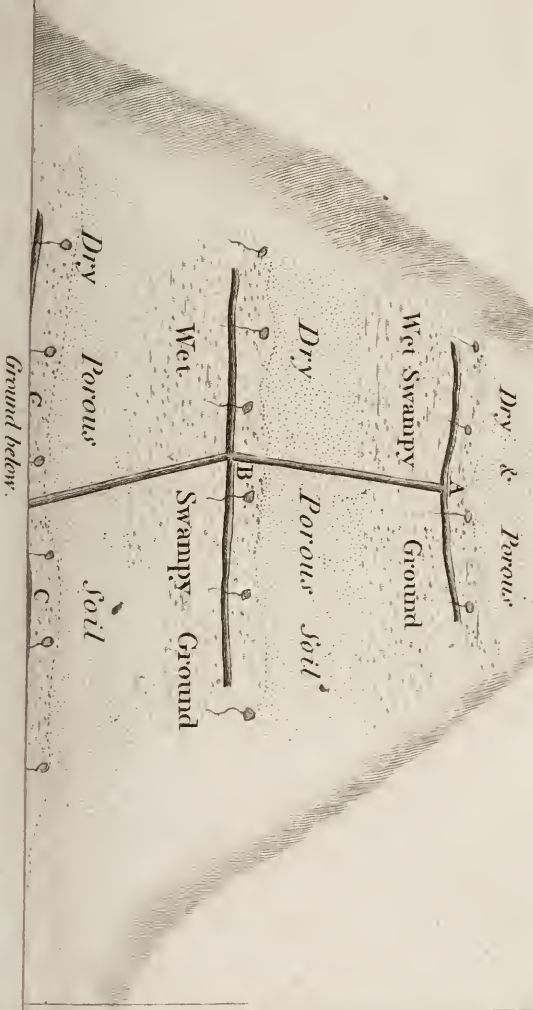 Dry & Porous
A
Wet Swampy Ground
Dry Porous Soil
B
Wet Swampy Ground
Dry Porous Soil
C C
Ground below.